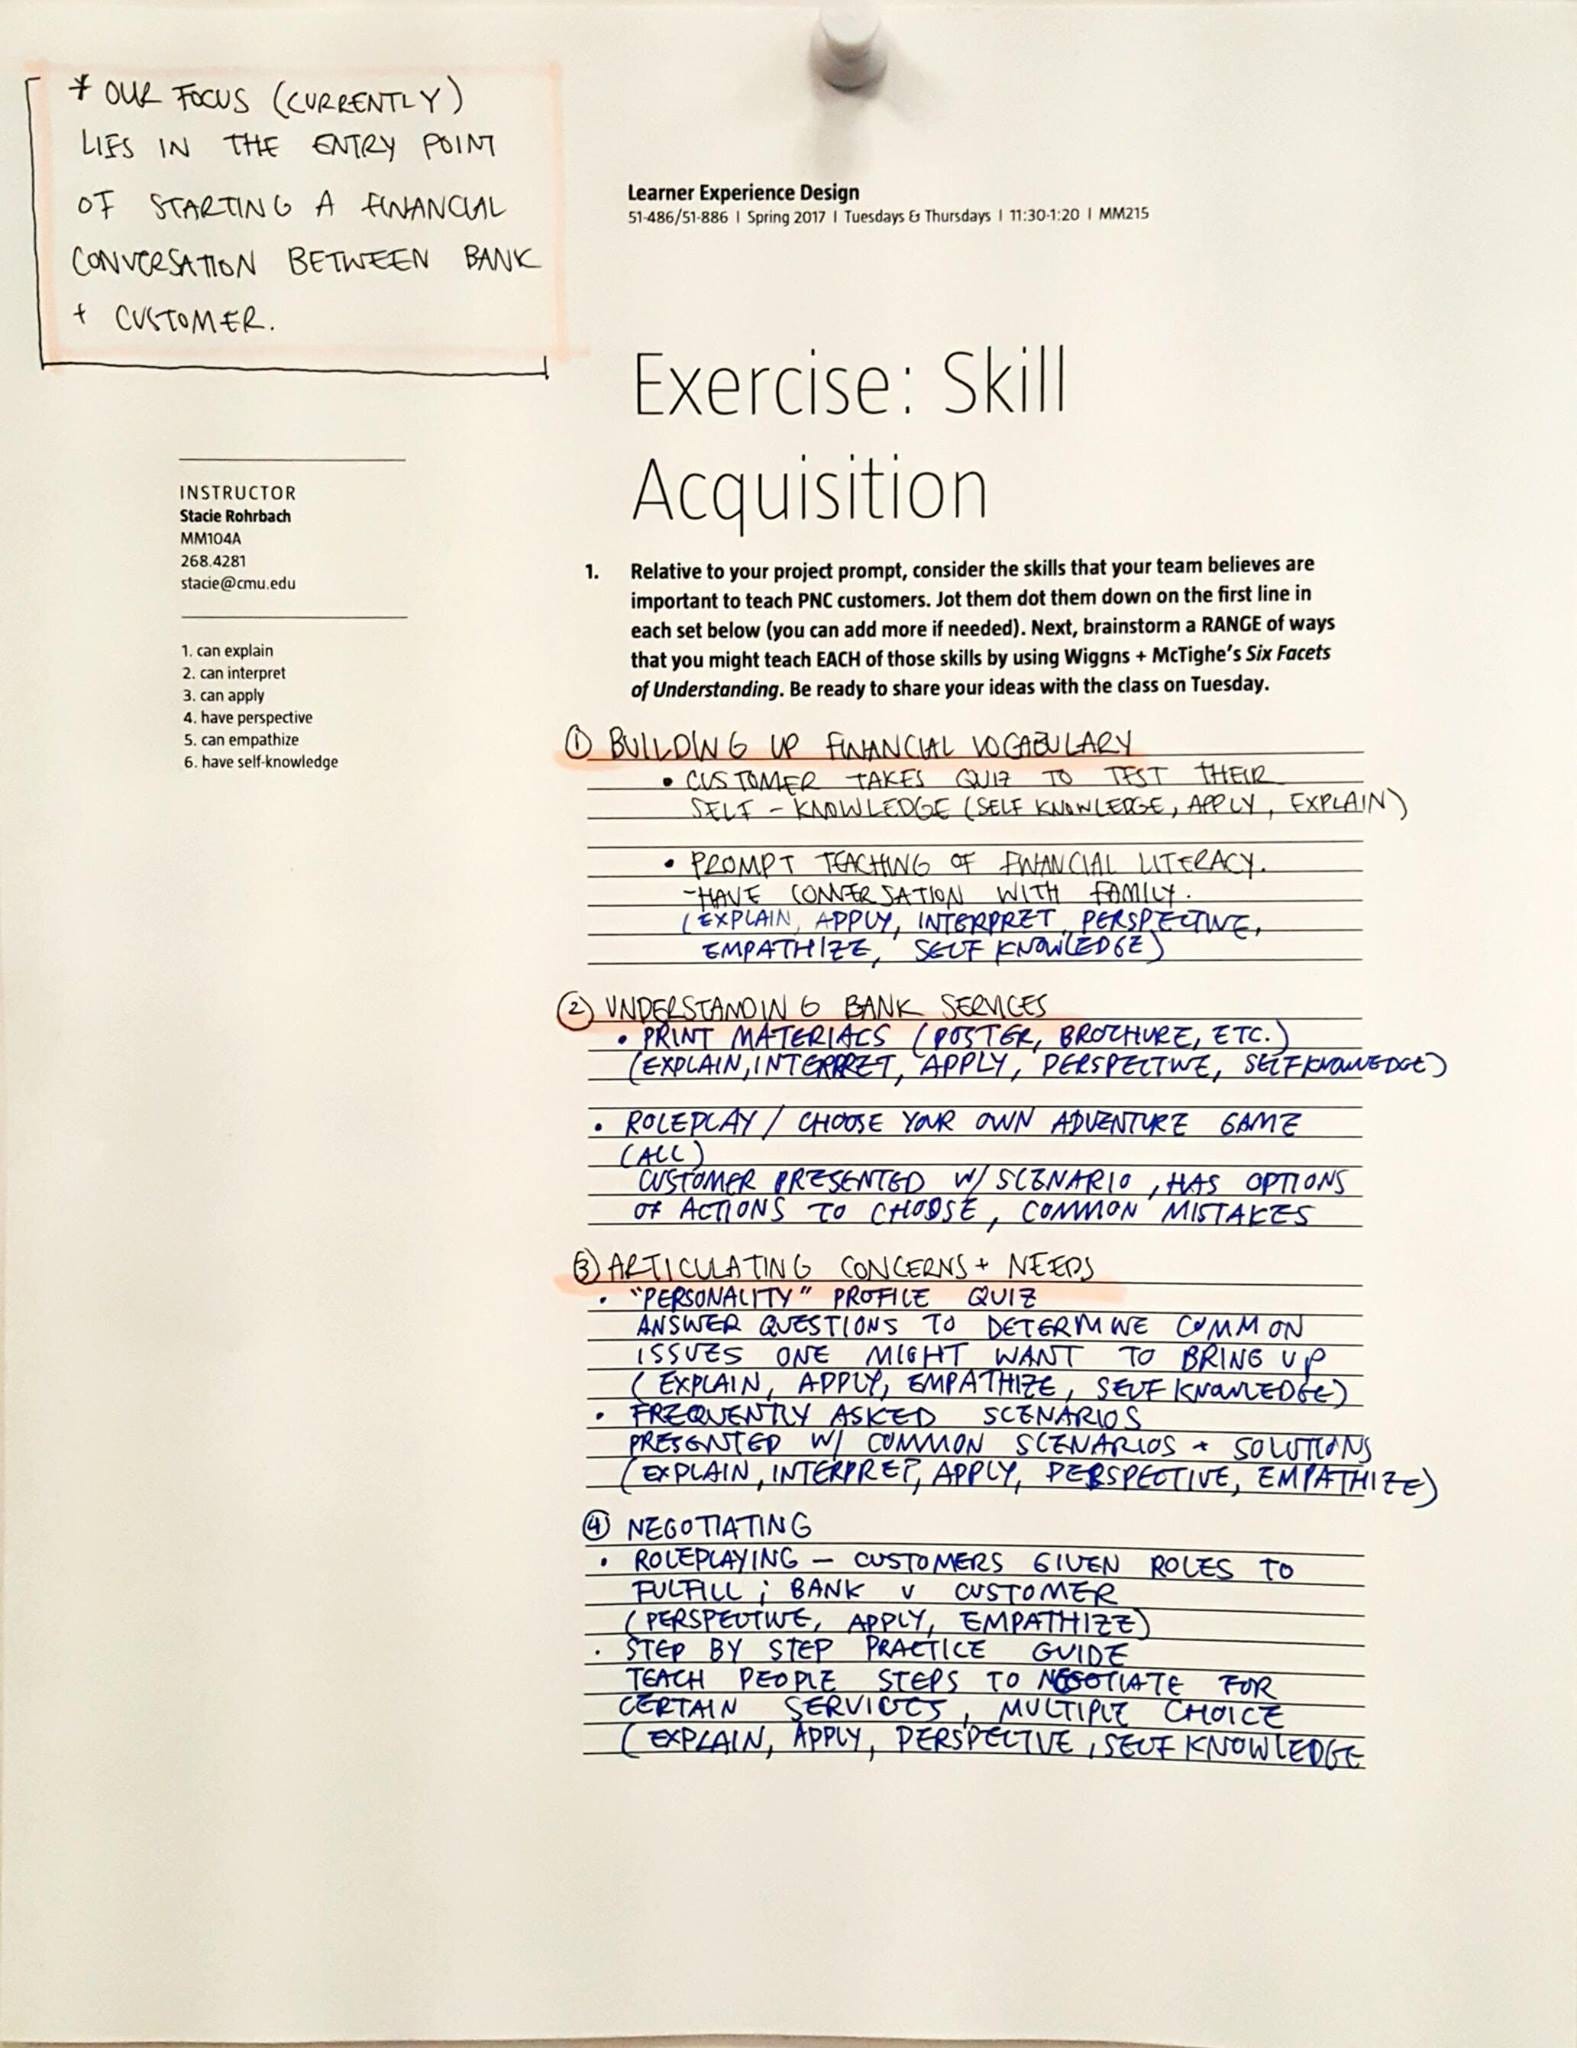 * OUR FOCUS (CURRENTLY)
LIES IN THE ENTRY POINT
OF STARTING A FINANCIAL
CONVERSATION BETWEEN BANK
+ CUSTOMER.
Learner Experience Design
51-486/51-886 | Spring 2017 | Tuesdays & Thursdays | 11:30-1:20 | MM215
Exercise: Skill
Acquisition
INSTRUCTOR
Stacie Rohrbach
MM104A
268.4281
stacie@cmu.edu
1. can explain
2. can interpret
3. can apply
4. have perspective
5. can empathize
6. have self-knowledge
1. Relative to your project prompt, consider the skills that your team believes are
important to teach PNC customers. Jot them dot them down on the first line in
each set below (you can add more if needed). Next, brainstorm a RANGE of ways
that you might teach EACH of those skills by using Wiggns + McTighe's Six Facets
of Understanding. Be ready to share your ideas with the class on Tuesday.
① BUILDING UP FINANCIAL VOCABULARY
• CUSTOMER TAKES QUIZ TO TEST THEIR
SELF - KNOWLEDGE (SELF KNOWLEDGE, APPLY, EXPLAIN)
• PROMPT TEACHING OF FINANCIAL LITERACY.
-HAVE CONVERSATION WITH FAMILY.
(EXPLAIN, APPLY, INTERPRET, PERSPECTIVE,
EMPATHIZE, SELF KNOWLEDGE)
② UNDERSTANDING BANK SERVICES
• PRINT MATERIALS (POSTER, BROCHURE, ETC.)
(EXPLAIN, INTERPRET, APPLY, PERSPECTIVE, SELF KNOWLEDGE)
• ROLEPLAY / CHOOSE YOUR OWN ADVENTURE GAME
(ALL)
CUSTOMER PRESENTED W/ SCENARIO, HAS OPTIONS
OF ACTIONS TO CHOOSE, COMMON MISTAKES
③ ARTICULATING CONCERNS + NEEDS
• "PERSONALITY" PROFILE QUIZ
ANSWER QUESTIONS TO DETERMINE COMMON
ISSUES ONE MIGHT WANT TO BRING UP
(EXPLAIN, APPLY, EMPATHIZE, SELF KNOWLEDGE)
• FREQUENTLY ASKED SCENARIOS
PRESENTED W/ COMMON SCENARIOS + SOLUTIONS
(EXPLAIN, INTERPRET, APPLY, PERSPECTIVE, EMPATHIZE)
④ NEGOTIATING
• ROLEPLAYING – CUSTOMERS GIVEN ROLES TO
FULFILL; BANK V CUSTOMER
(PERSPECTIVE, APPLY, EMPATHIZE)
• STEP BY STEP PRACTICE GUIDE
TEACH PEOPLE STEPS TO NEGOTIATE FOR
CERTAIN SERVICES, MULTIPLE CHOICE
(EXPLAIN, APPLY, PERSPECTIVE, SELF KNOWLEDGE